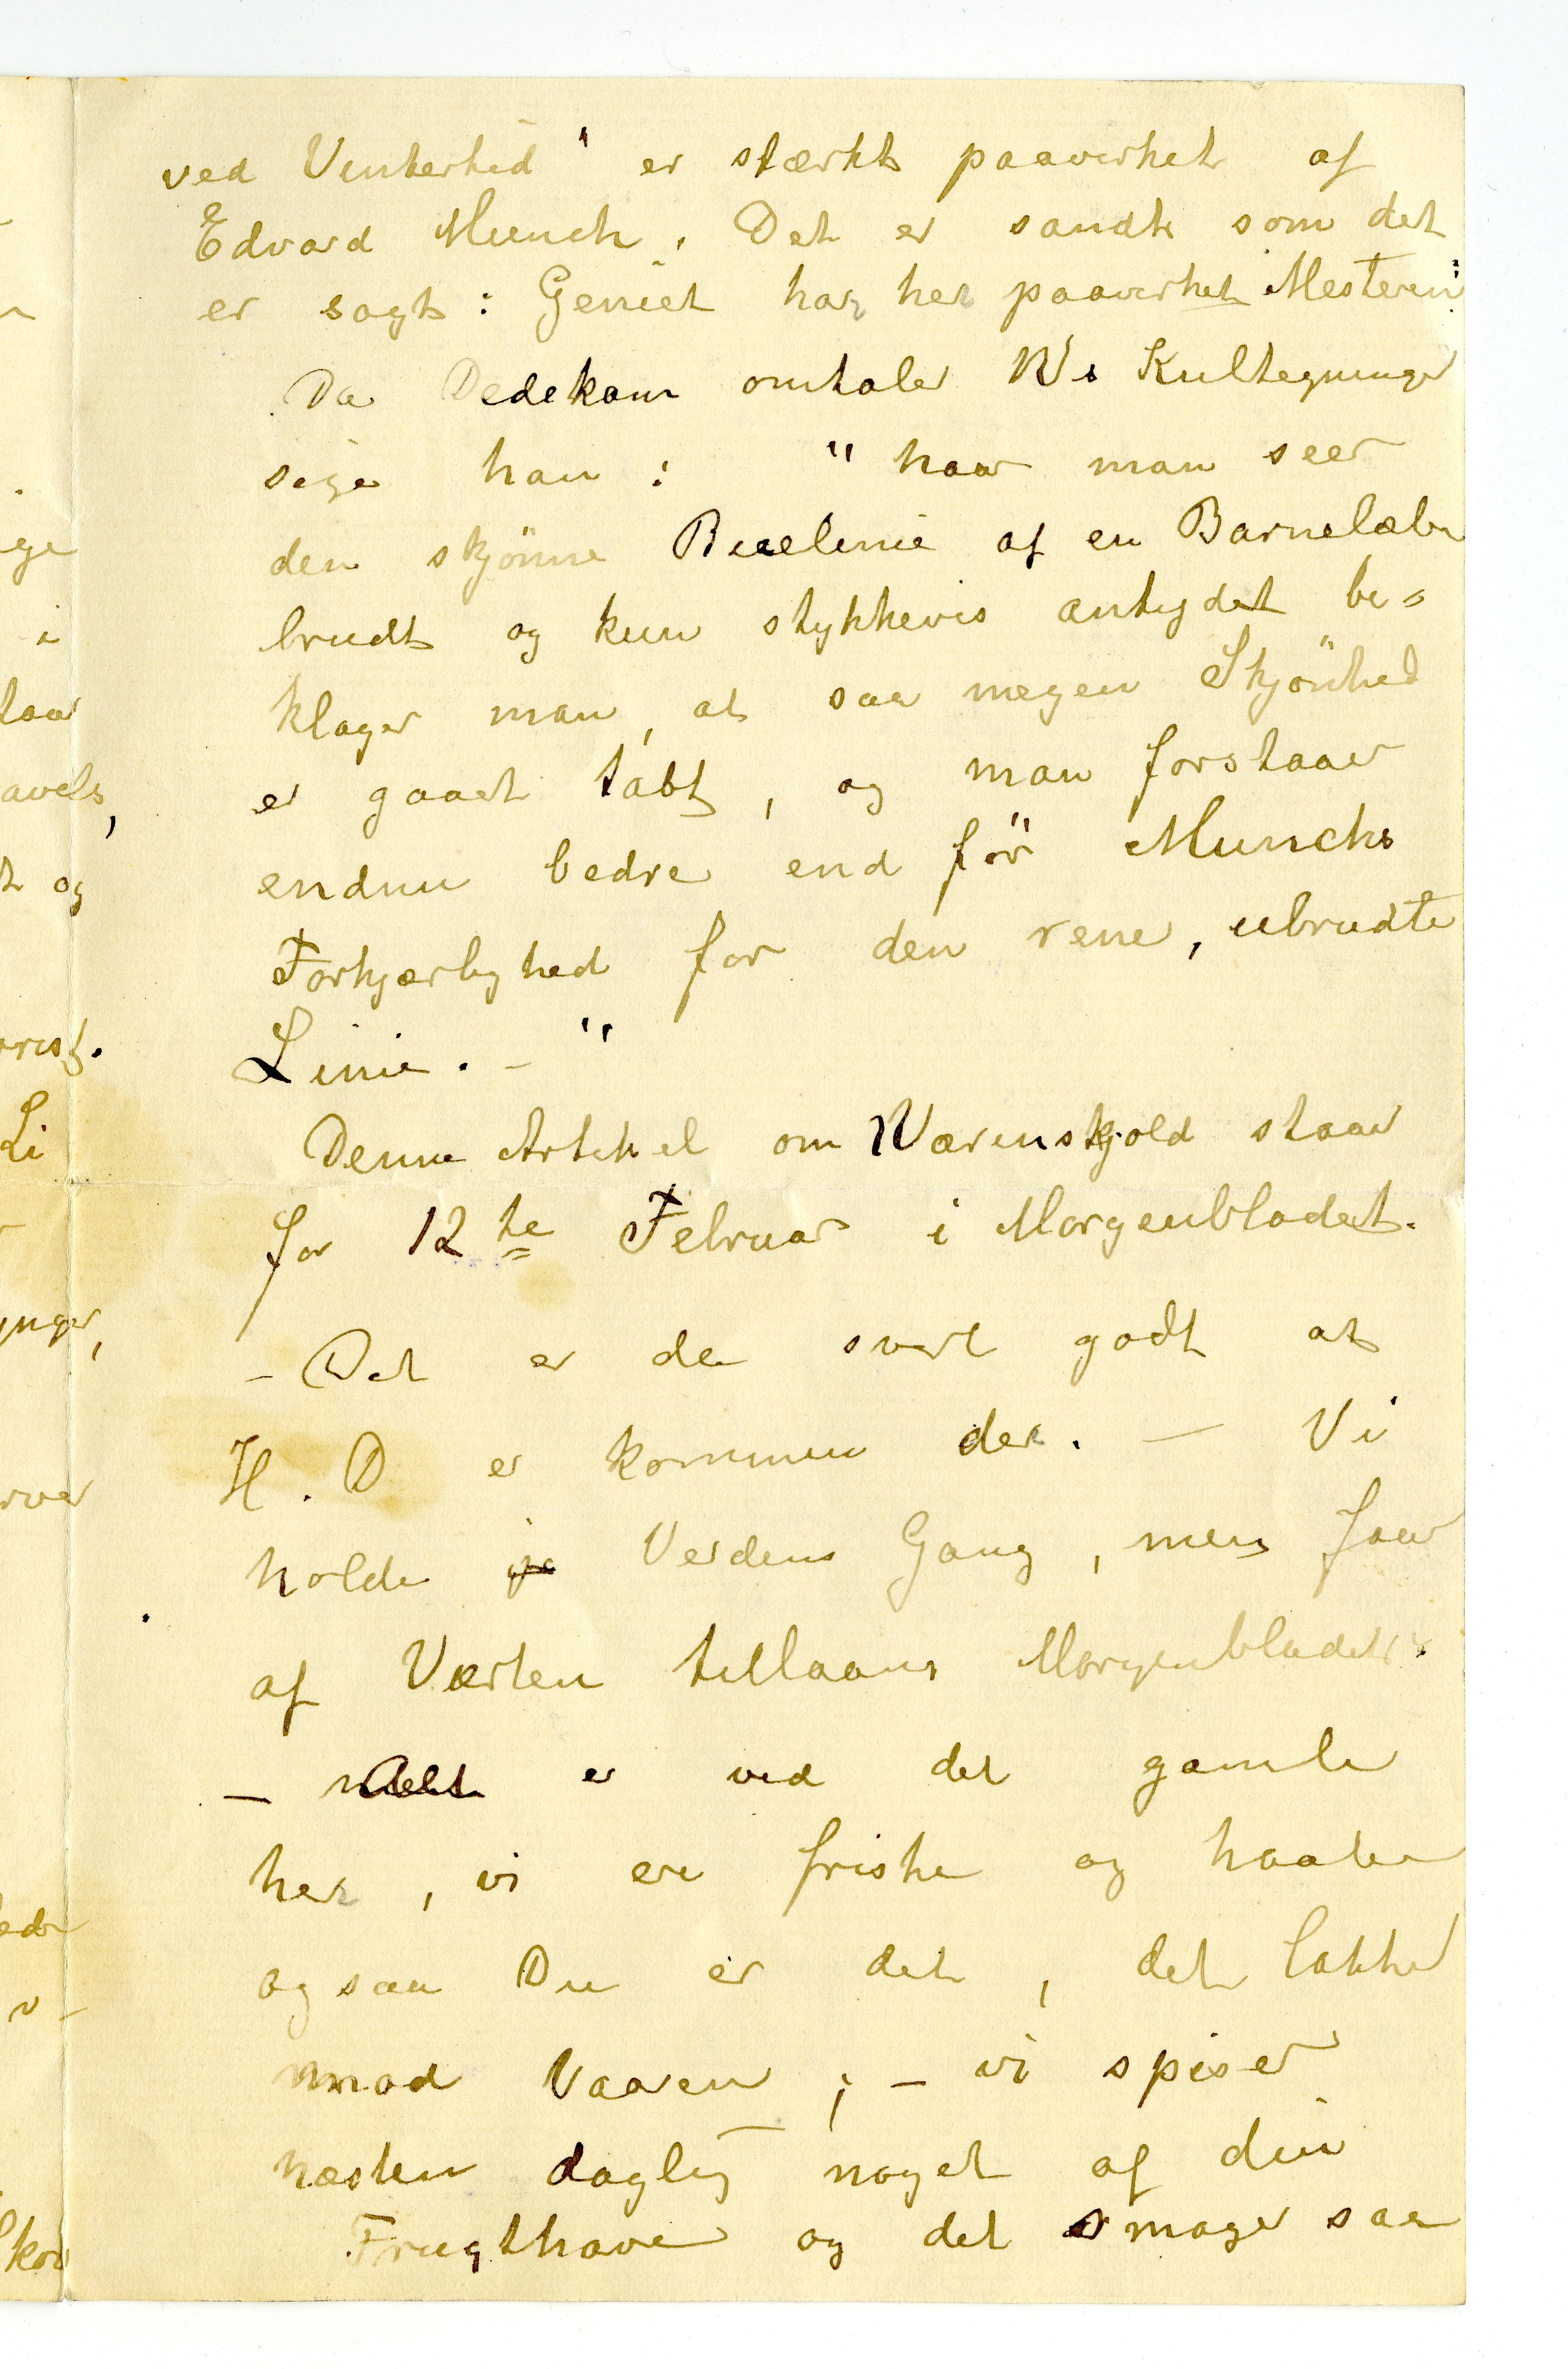 ved Vintertid" er stærkt paavirket af
Edvard Munch. Det er sandt som det
er sagt: Geniet har her paavirket Mesteren"
Da Dedekam omtaler Ws Kultegninger
siger han: "naar man seer
den skjönne Buelinie af en Barnelæbe
brudt og kun stykkevis antydet be=
klager man, at saa megen Skjönhed
er gaaet tabt, og man forstaar
endnu bedre end för Munchs
Forkjærlighed for den rene, ubrudte
Linie. - "
Denne Artikel om Wærenskjold staar
for 12te Februar i Morgenbladet.
- Det er da svært godt at
H. D er kommen der. — Vi
holde jo Verdens Gang, men faar
af Værten tillaans Morgenbladet.
— Alt er ved det gamle
her, vi ere friske og haaber
ogsaa Du er det, det lakker
mod Vaaren; — vi spiser
næsten daglig noget af din
Frugthave og det smager saa
ge
i
taar
avels,
t og
Li
ynger,
edr